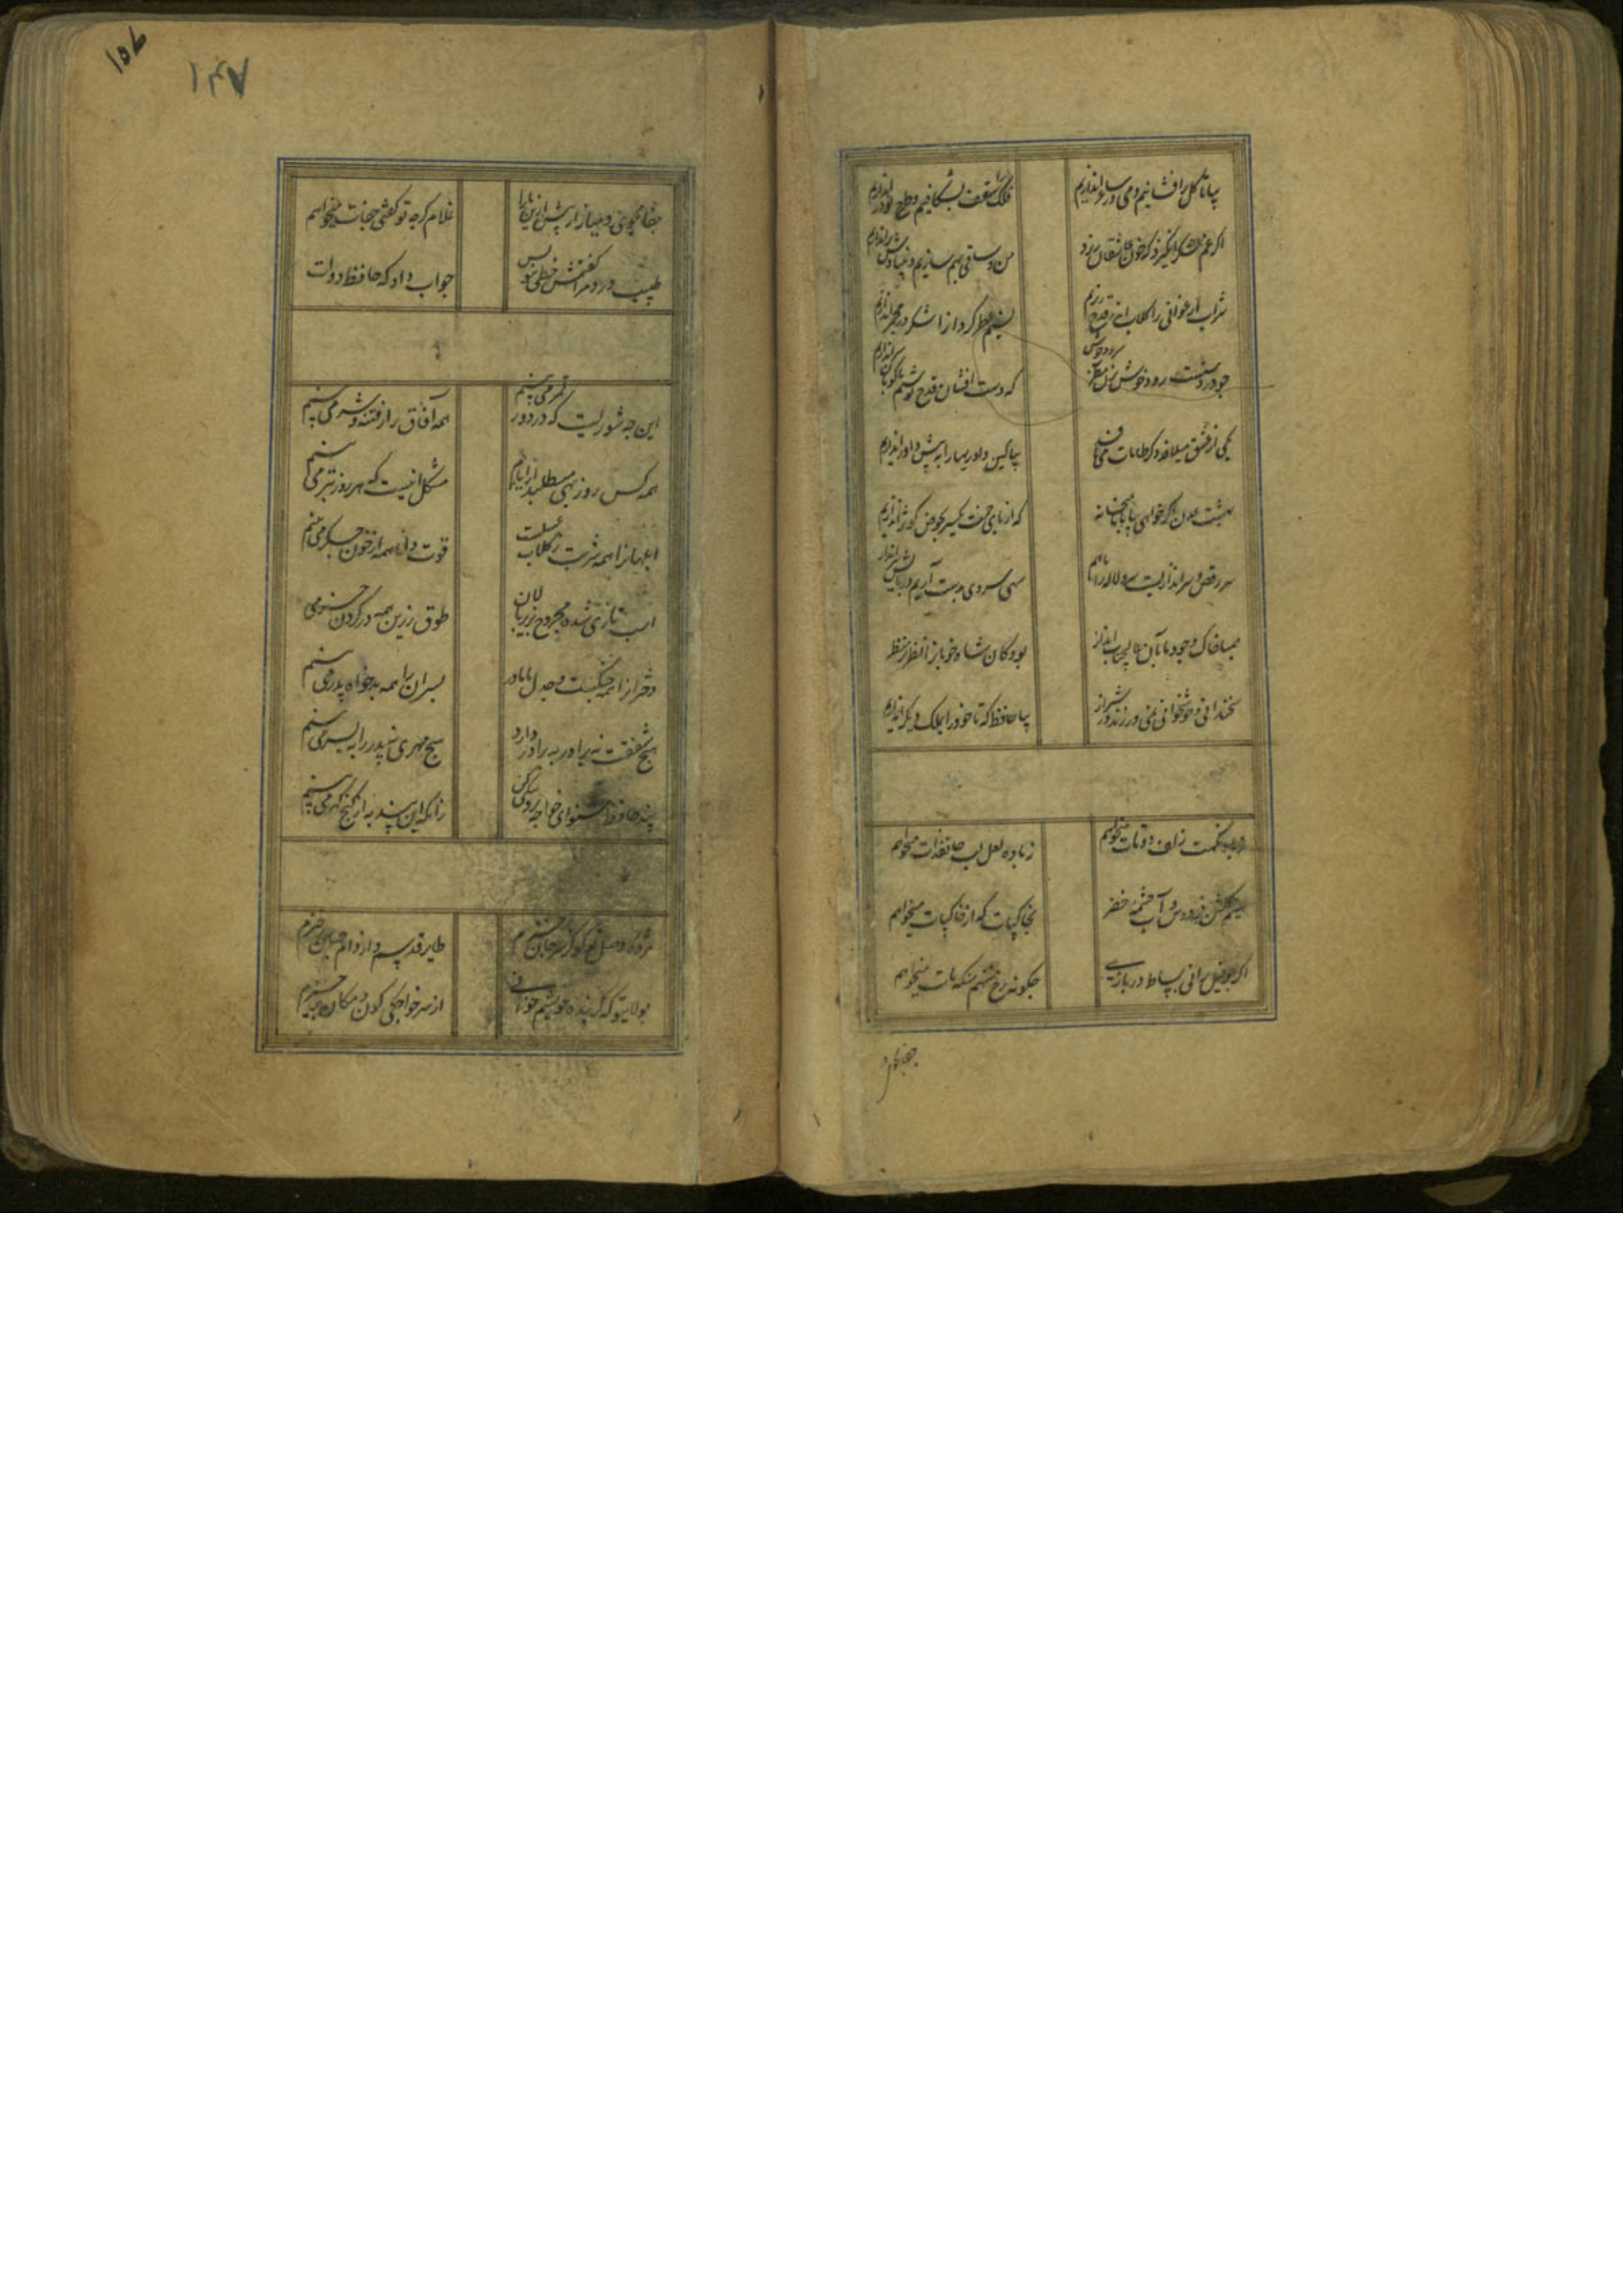 بیا تا گل برافشانیم و می در ساغر اندازیم
فلک را سقف بشکافیم و طرح نو دراندازیم
اگر غم لشکر انگیزد که خون عاشقان ریزد
من و ساقی بهم سازیم و بنیادش براندازیم
شراب ارغوانی را گلاب اندر قدح ریزیم
نسیم عطر گردانرا شکر در مجمر اندازیم
چو در دستست رودی خوش بزن مطرب سرودی خوش
که دست افشان پاکوبان سر اندازیم
یکی از عشق میلافد دگر طامات می بافد
بیا کین داوریها را به پیش داور اندازیم
بهشت عدن اگر خواهی بیا با ما بمیخانه
که از پای خمت یکسر بحوض کوثر اندازیم
صبا خاک وجود ما بآن عالیجناب انداز
بود کان شاه خوبانرا نظر بر منظر
سخندانی و خوشخوانی نمی ورزند در شیراز
بیا حافظ که تا خود را بملک دیگر اندازیم
زباده لعل لب جانفزات میخواهم
نسیم گلشن فردوس و آب چشمه خضر
بخاکپات که از خاکپات میخواهم
چگونه رخ ننهم منکه مات میخواهم
۱۵۶
۱۴۷
غلام گرچه تو گفتی جفات میخواهم
طبیب درد مرا
جواب داد که حافظ دوات
این چه شوریست که در دور قمر می بینم
همه آفاق پر از فتنه و شر می بینم
همه کس روز بهی میطلبد از ایام
مشکل اینست که هر روز بتر می بینم
ابلهانرا همه شربت ز گلاب و عسلست
قوت دانا همه از خون جگر می بینم
اسب تازی شده مجروح بزیر پالان
طوق زرین همه در گردن خر می
دخترانرا همه جنگست و جدل با مادر
پسران را همه بدخواه پدر می بینم
هیچ شفقت نه برادر به برادر دارد
هیچ مهری نه پدر را به پسر می بینم
پند حافظ بشنو ای خواجه برو نیکی کن
زانکه این پند به از گنج گهر می بینم
مژده وصل تو کو کز سر جان برخیزم
طایر قدسم و از دام جهان برخیزم
بولای تو که گر بنده خویشم خوانی
از سر خواجگی کون و مکان برخیزم